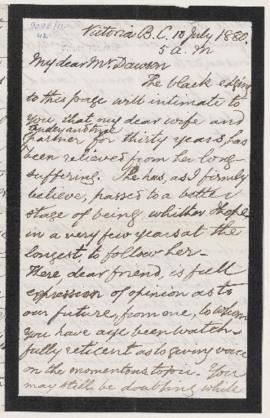 Victoria B.C. 10 July 1880.
5 a.m
My dear Mr Dawson
The black edging
to this page will intimate to
you, that my dear wife and
tender and true
partner for thirty years, has
been relieved from her long-
suffering. She has, as I firmly
believe, passed to a better
stage of being whither I hope
in a very few years at the
longest, to follow her-
There dear friend, is full
expression of opinion as to
our future, from one, to whom
you have aye been watch-
fully reticent as to giving voice
on the momentous topic. You
may still be doubting while